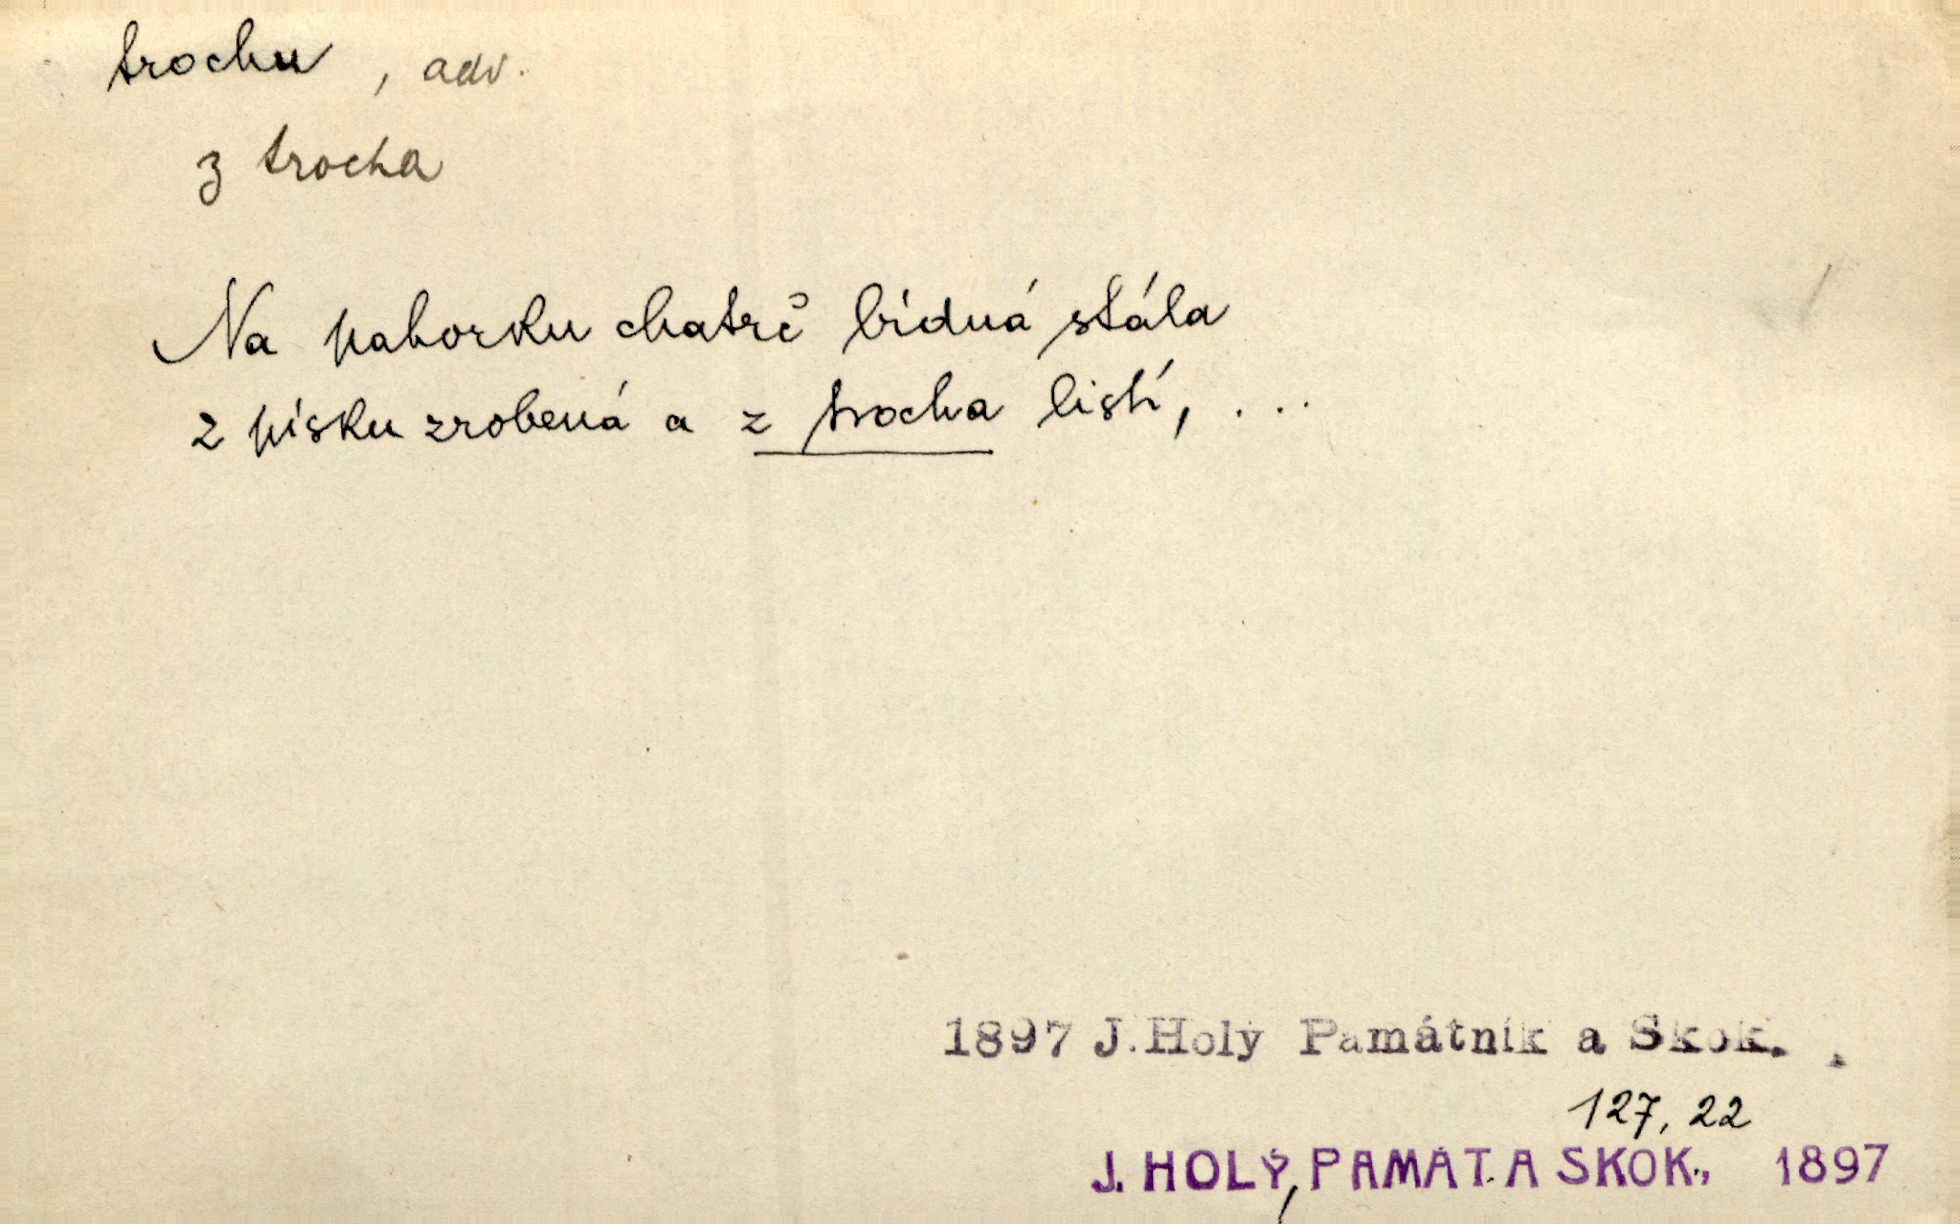 trochu, adv.
z trocha
Na pahorku chatrč bídná stála
z písku zrobená a z trocha listí, ...
1897 J. Holý Památník a Skok.
127, 22
J. HOLÝ, PAMÁT. A SKOK., 1897